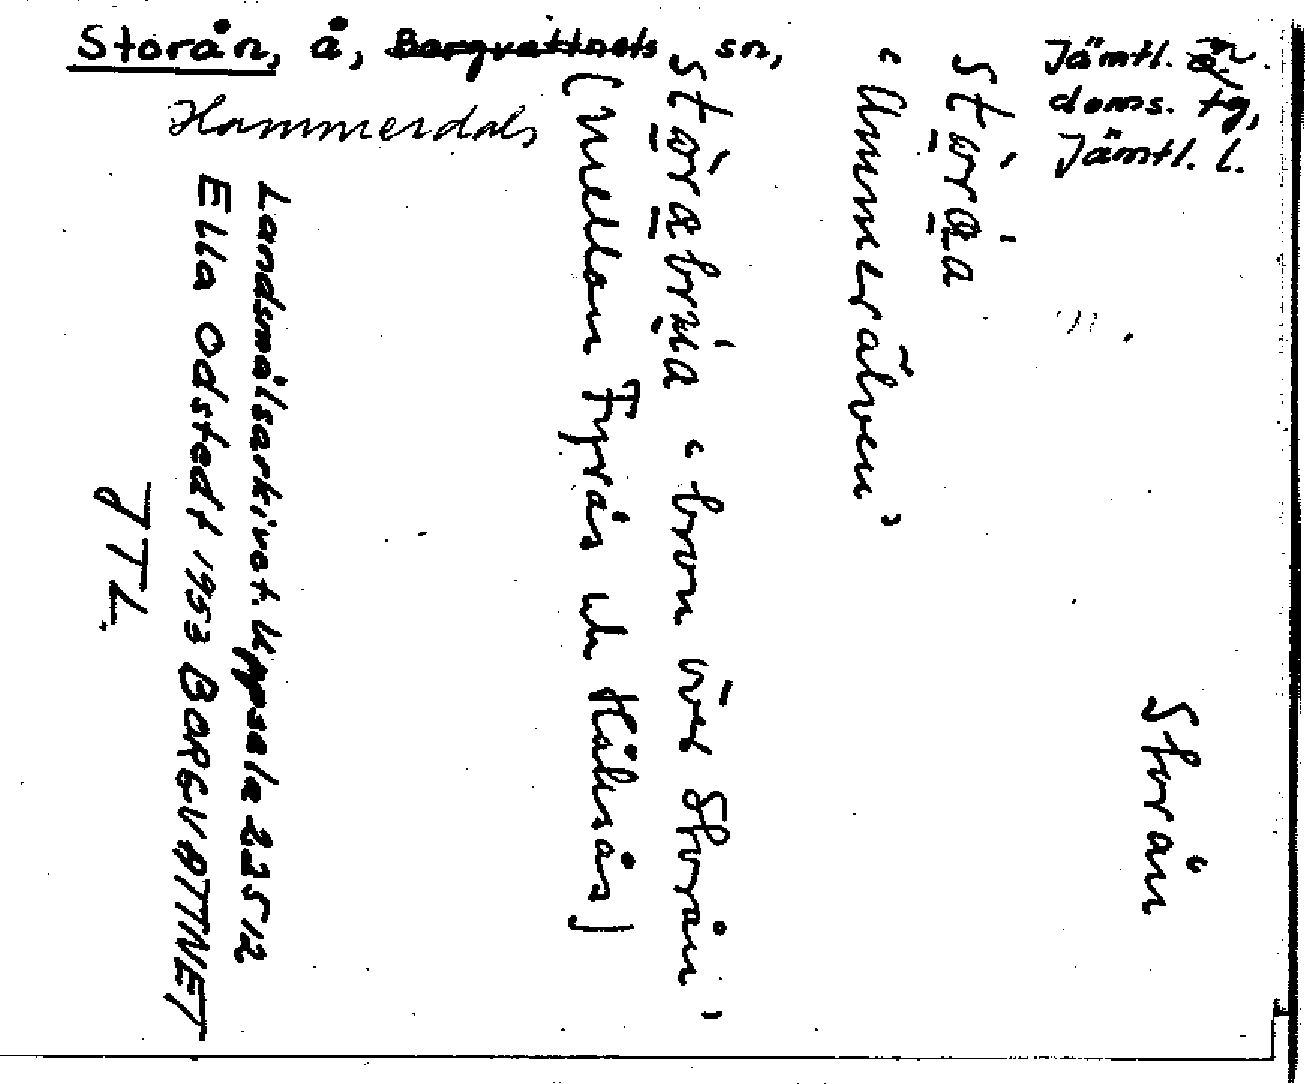 Storån, å, Borgvattnets sn,
Hammerdals
Jämtl. n.
doms. tg,
Jämtl. l.
Storån
Stórǻa
"Ammerälven"
Stóræbrúa "bron över Storån"
(mellan Fyrås och Hålnäs)
Landsmålsarkivet. Uppsala 22512
Ella Odstedt 1953 BORGVATTNET
JTL.